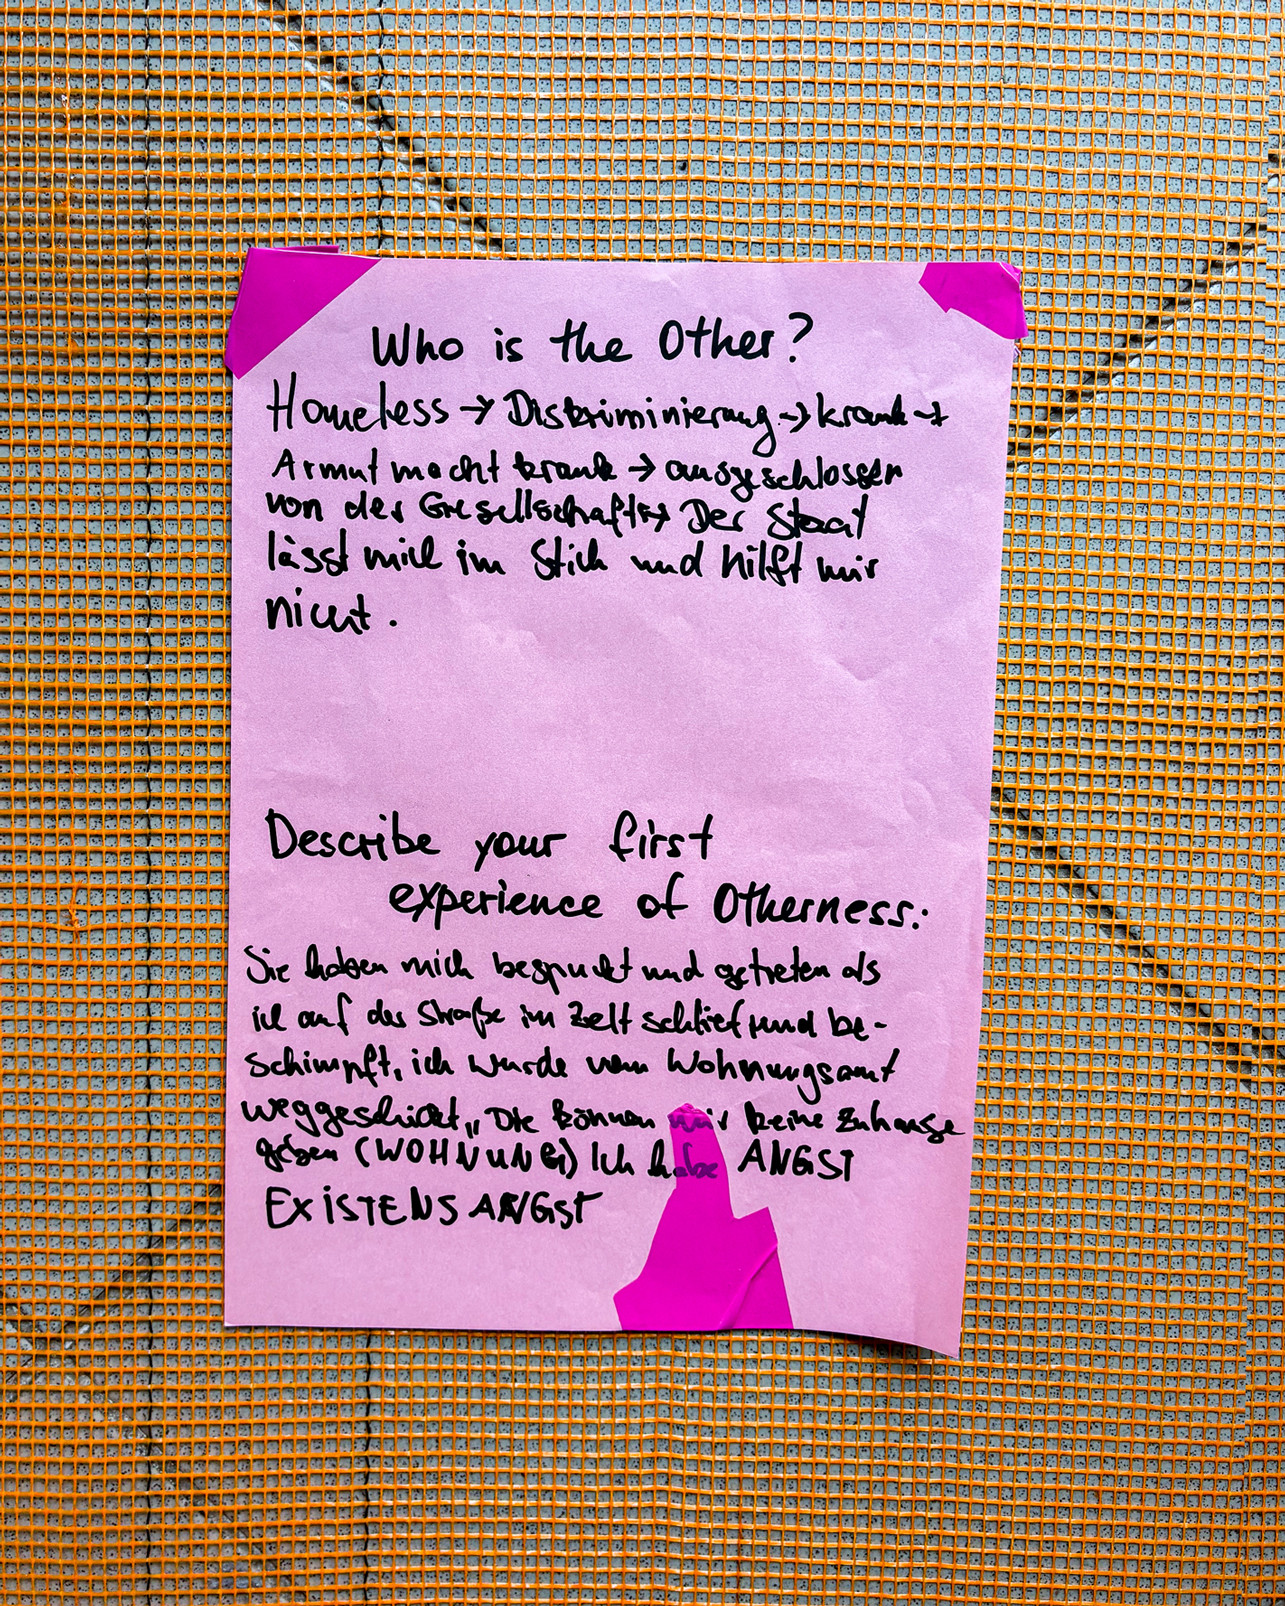 Who is the Other?
Homeless → Diskriminierung → krank →
Armut macht krank → ausgeschlossen
von der Gesellschaft → Der Staat
lässt mich im Stich und hilft mir
nicht.
Describe your first
experience of Otherness:
Sie haben mich bespuckt und getreten als
ich auf der Straße im Zelt schlief und be-
schimpft, ich wurde vom Wohnungsamt
weggeschickt „ Die können mir keine Zuhause
geben (WOHNUNG) Ich habe ANGST
EXISTENSANGST